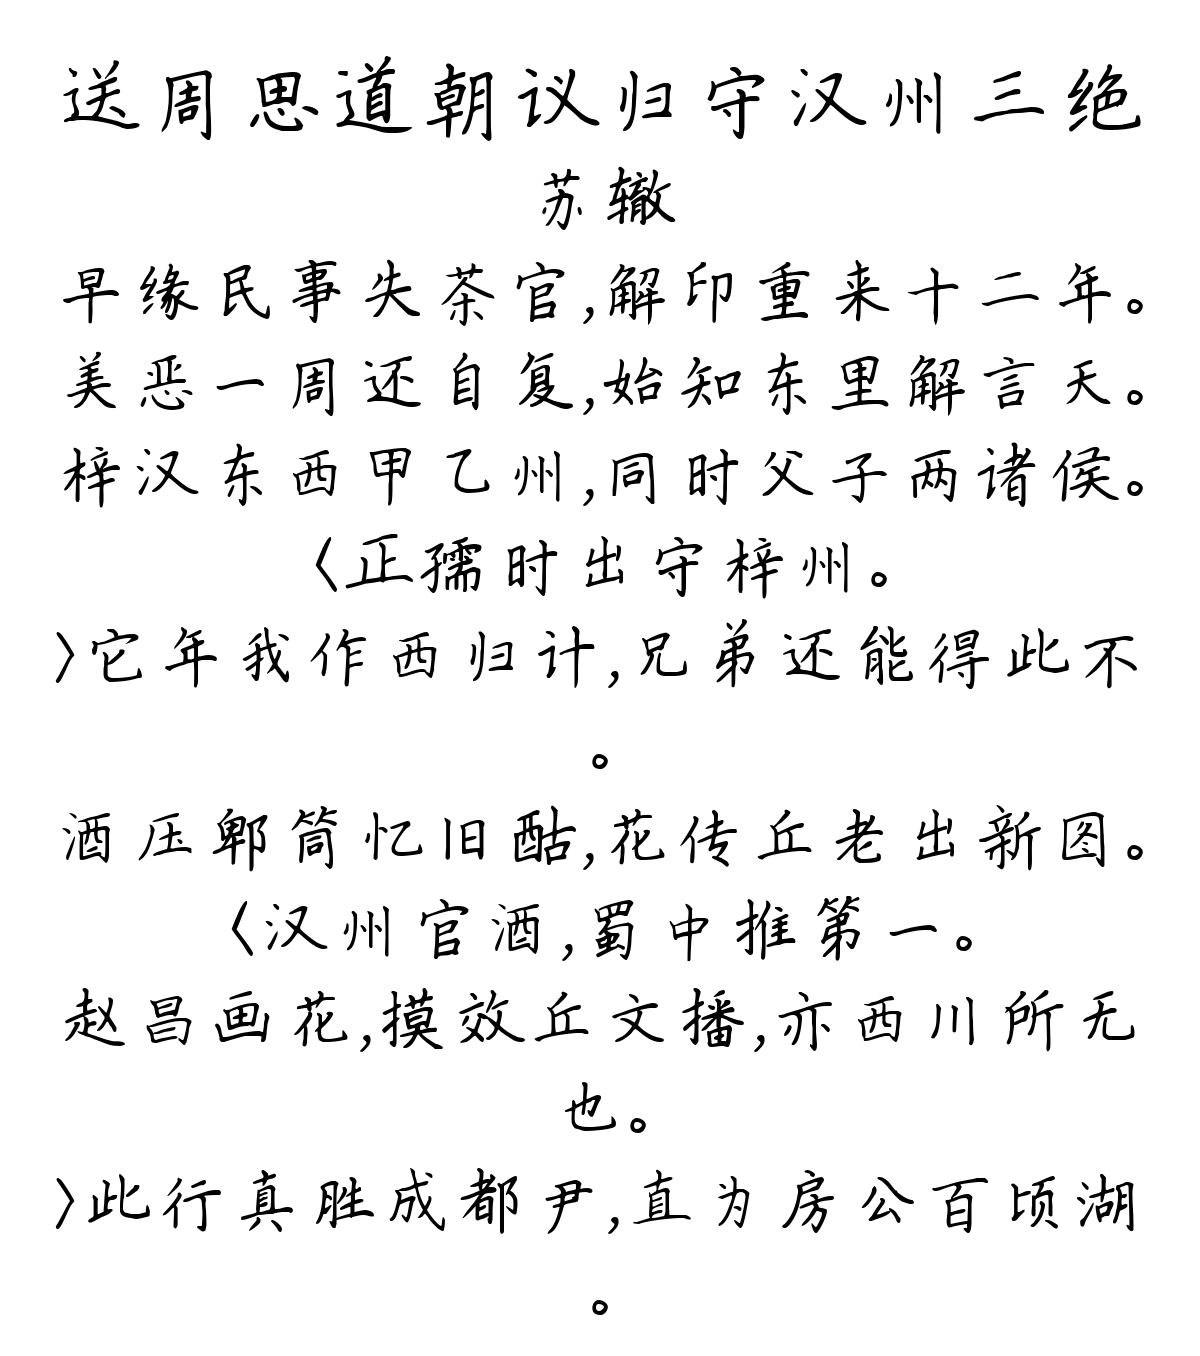 送周思道朝议归守汉州三绝
苏辙
早缘民事失茶官,解印重来十二年。
美恶一周还自复,始知东里解言天。
梓汉东西甲乙州,同时父子两诸侯。
〈正孺时出守梓州。
〉它年我作西归计,兄弟还能得此不
。
酒压郫筒忆旧酤,花传丘老出新图。
〈汉州官酒,蜀中推第一。
赵昌画花,摸效丘文播,亦西川所无
也。
〉此行真胜成都尹,直为房公百顷湖
。